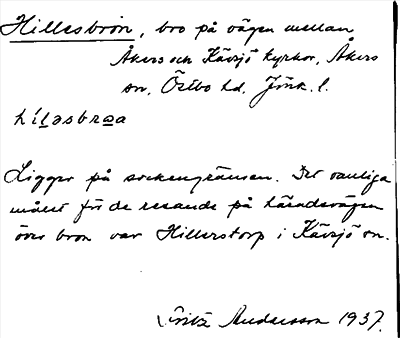 Hillesbron, bro på vägen mellan
Åkers och Kävsjö kyrkor, Åkers
sn, Östbo hd, Jönk. l.
híləsbrωa
Ligger på sockengränsen. Det vanliga
målet för de resande på häradsvägen
över bron var Hillerstorp i Kävsjö sn.
Fritz Andersson 1937.